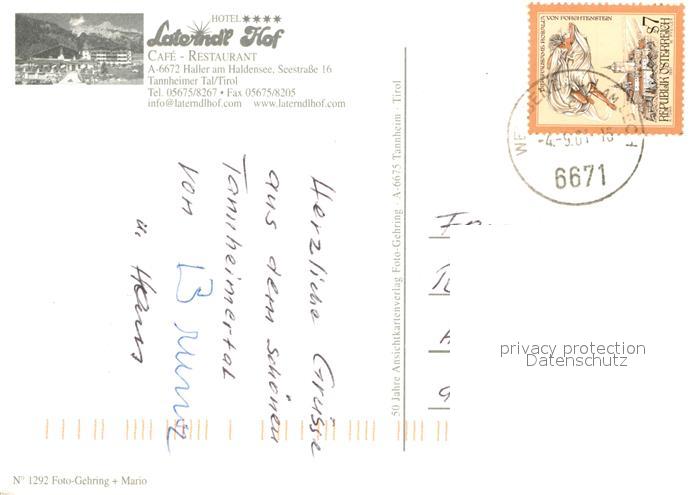 HOTEL ★★★★
Laterndl Hof
CAFÉ - RESTAURANT
A-6672 Haller am Haldensee, Seestraße 16
Tannheimer Tal/Tirol
Tel. 05675/8267 • Fax 05675/8205
info@laterndlhof.com www.laterndlhof.com
Herzliche Grüsse
aus dem schönen
Tannheimertal
von
u. Hans
50 Jahre Ansichtkartenverlag Foto-Gehring · A-6675 Tannheim · Tirol
S7
REPUBLIK ÖSTERREICH
6671
privacy protection
Datenschutz
N° 1292 Foto-Gehring + Mario